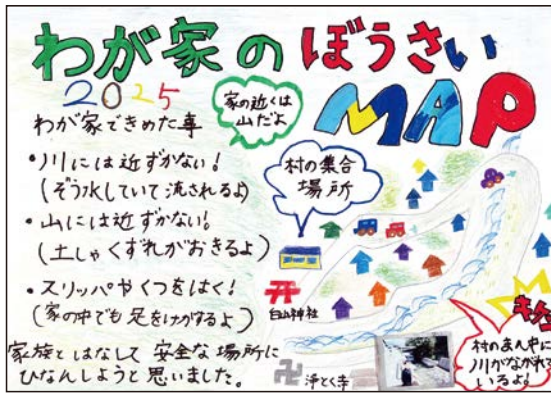 わが家のぼうさい
MAP
2025
わが家できめた事
・川には近ずかない!
(ぞう水していて流されるよ)
・山には近ずかない!
(土しゃくずれがおきるよ)
・スリッパやくつをはく!
(家の中でも足をけがするよ)
家族とはなして安全な場所に
ひなんしようと思いました。
家の近くは
山だよ
村の集合
場所
白山神社
卍浄とく寺
村のまん中に
川がながれて
いるよ!